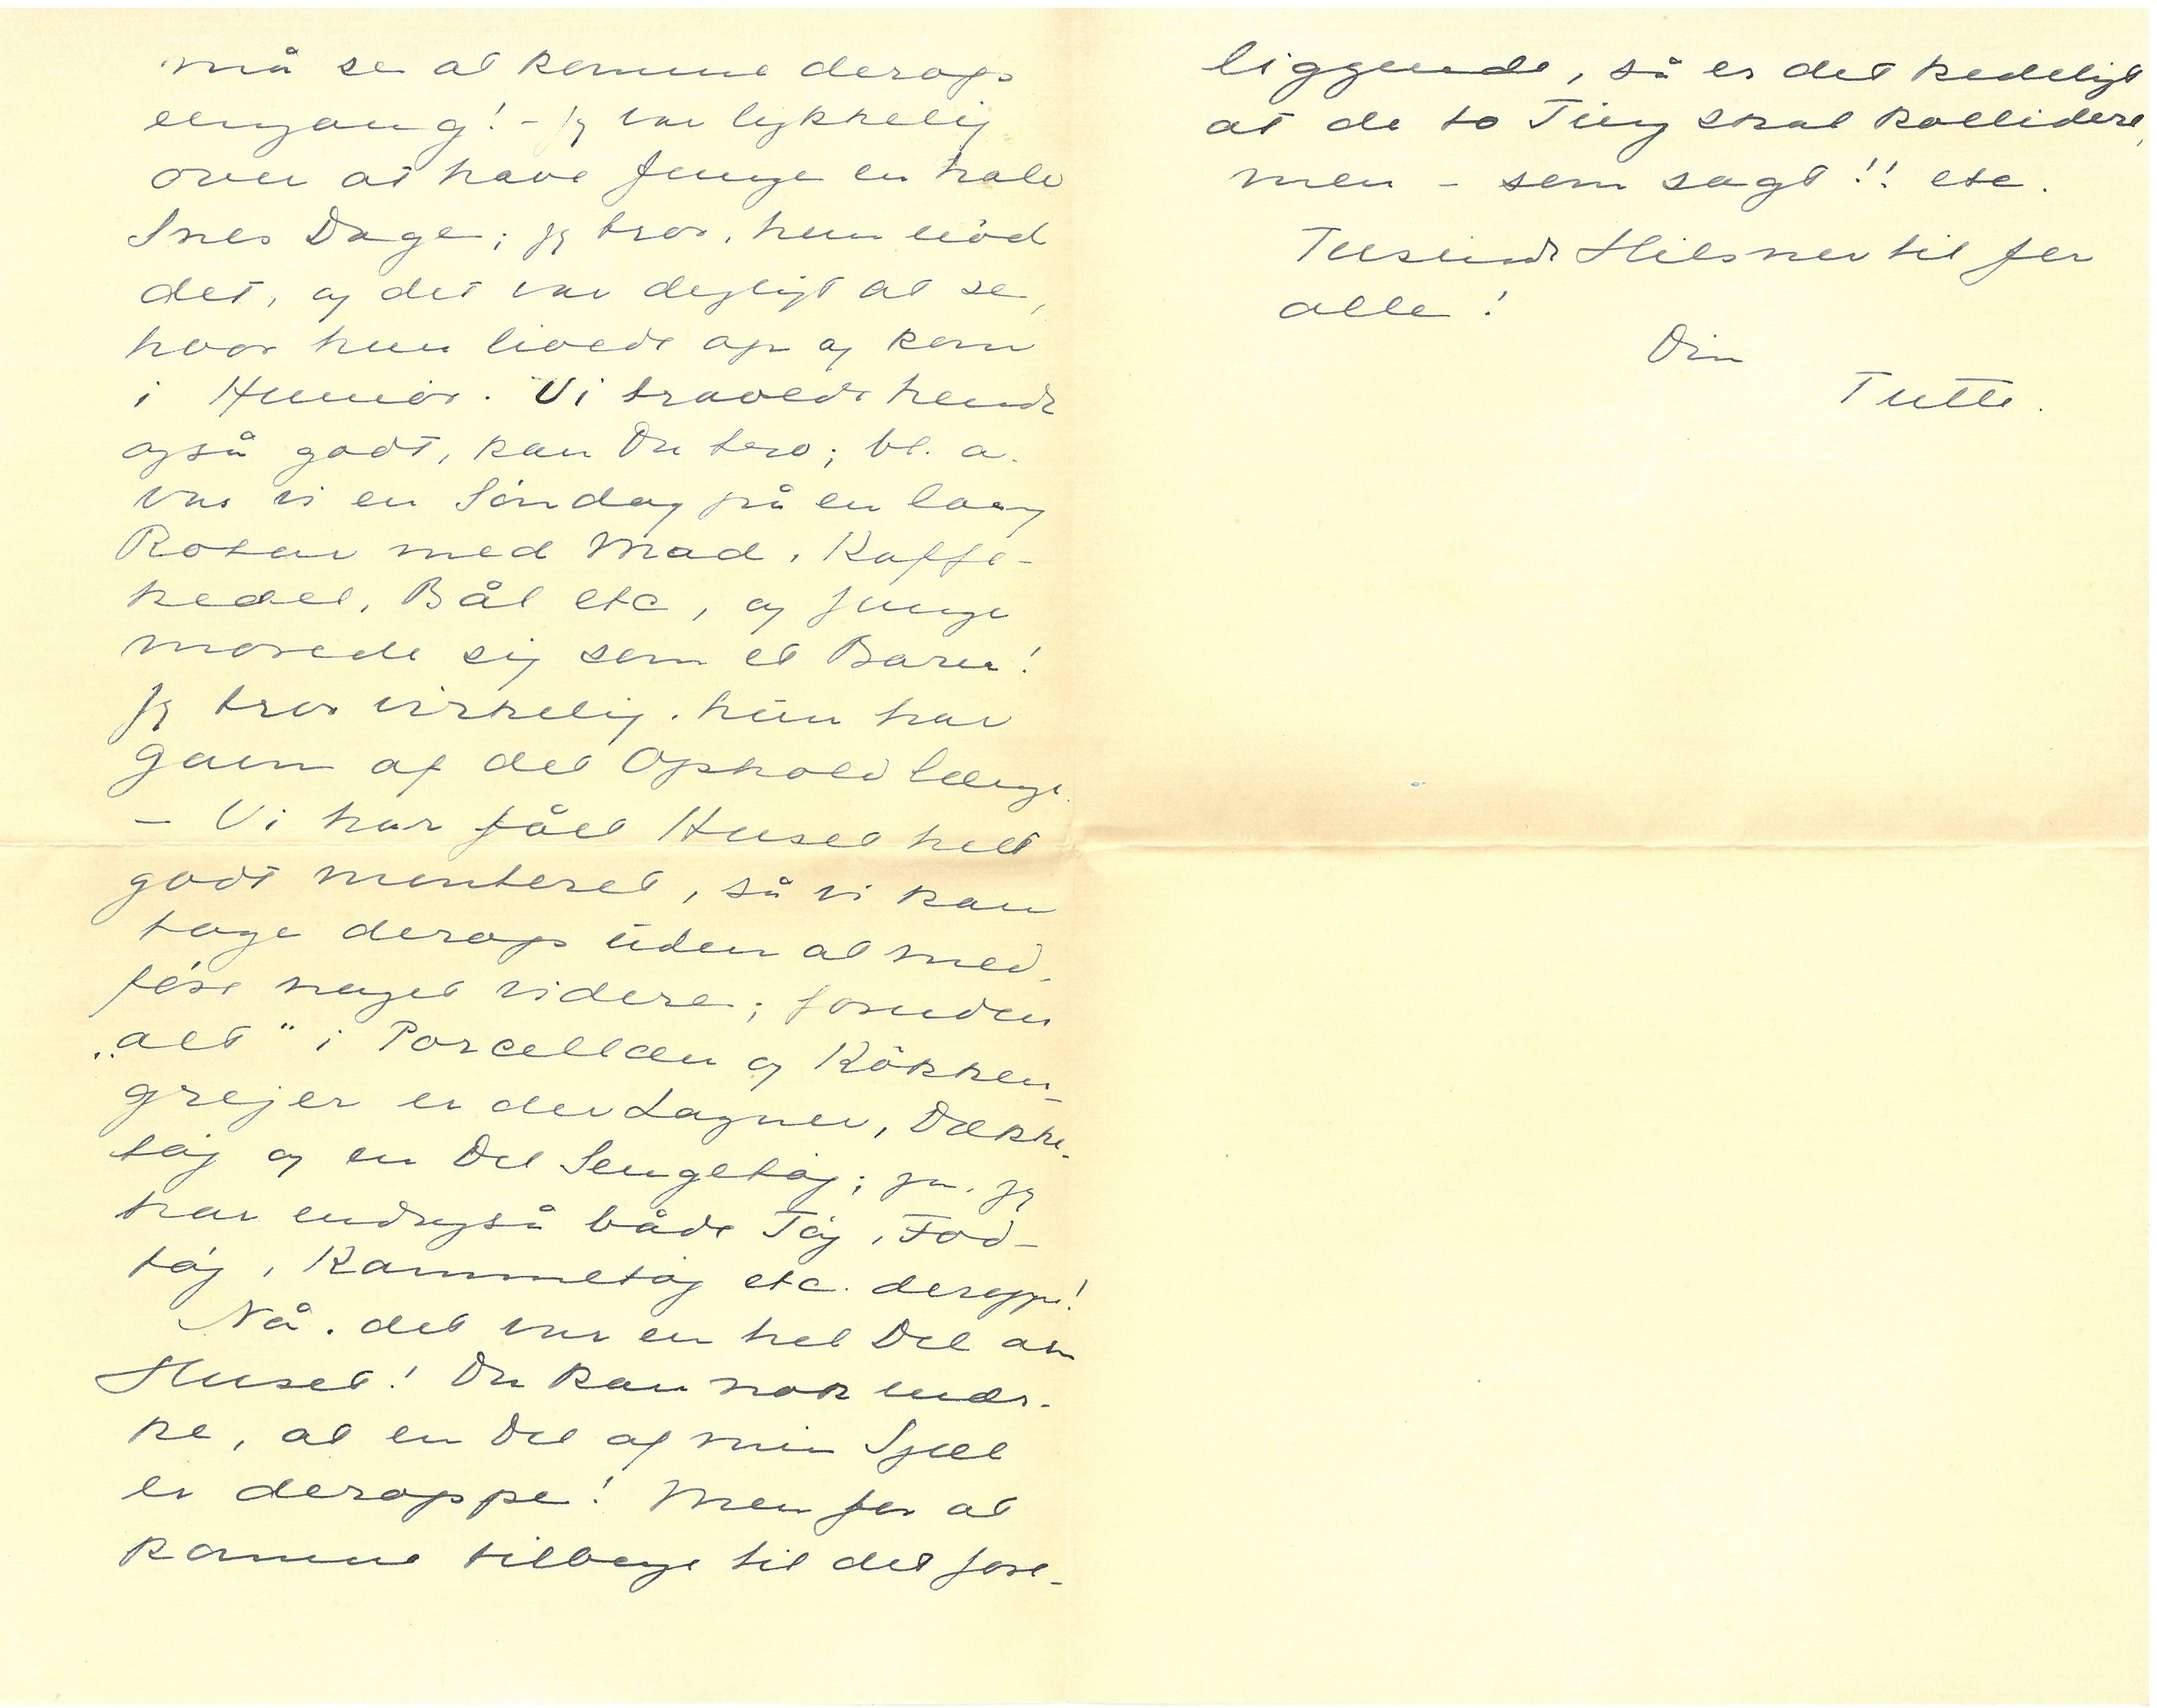 må se at komme derop
engang! - Jeg var lykkelig
over at have Junge en halv
Snes Dage; jeg tror, hun nöd
det, og det var dejligt at se,
hvor hun livede op og kom
i Humör. Vi travede hende
også godt, kan Du tro; bl. a.
var vi en Söndag på en lang
med Mad, Kaffe-
kedel, Bål etc, og Junge
morede sig som et Barn!
Jeg tror virkelig, hun har
Gavn af det Ophold længe.
- Vi har fået Huset helt
godt monteret, så vi kan
tage derop uden at med-
före noget videre; foruden
„alt" i Porcellæn og Kökken-
grejer er der Lagner, Dække-
töj og en Del Sengetöj; ja, jeg
har endogså både Töj, Fod-
töj, Kammetöj etc. deroppe!
Nå, det var en hel Del om
Huset! Du kan nok mær-
ke, at en Del af min Sjæl
er deroppe! Men for at
komme tilbage til det fore-
liggende, så er det kedeligt
at de to Ting skal kollidere,
men - som sagt!! etc.
Tusinde Hilsner til Jer
alle!
Din
Tutte.